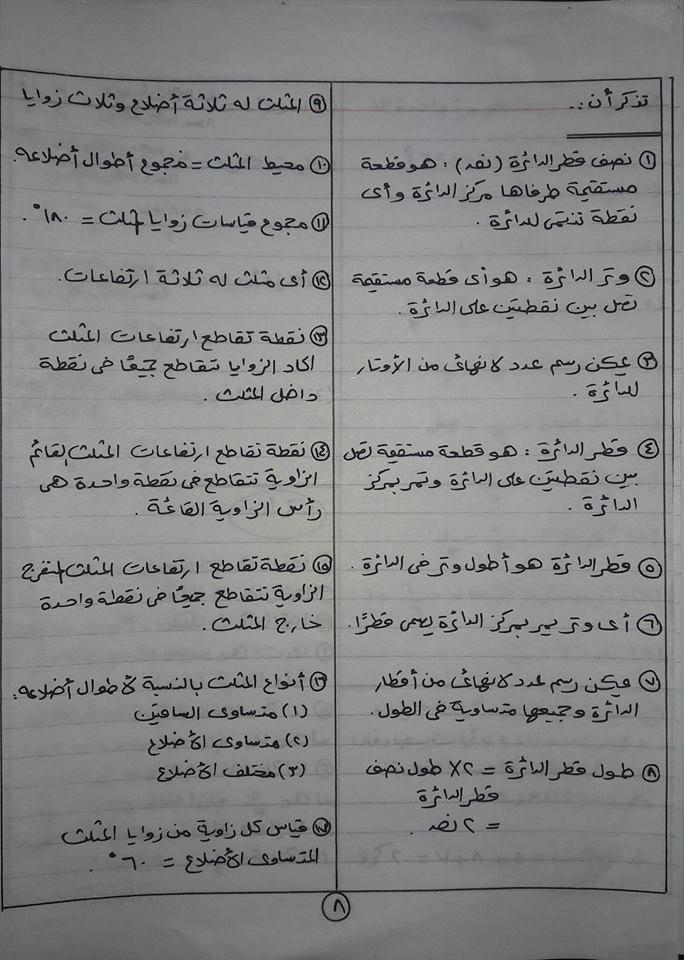 تذكر أن :.
① نصف قطر الدائرة (نصہ) : هو قطعة
مستقيمة طرفاها مركز الدائرة وأى
نقطة تنتمى للدائرة .
② وتر الدائرة : هو أى قطعة مستقيمة
تصل بين نقطتين على الدائرة .
③ يمكن رسم عدد لا نهائى من الأوتار
للدائرة .
④ قطر الدائرة : هو قطعة مستقيمة تصل
بين نقطتين على الدائرة وتمر بمركز
الدائرة .
⑤ قطر الدائرة هو أطول وتر فى الدائرة .
⑥ أى وتر يمر بمركز الدائرة يسمى قطرًا .
⑦ يمكن رسم عدد لا نهائى من أقطار
الدائرة وجميعها متساوية فى الطول .
⑧ طول قطر الدائرة = ٢ × طول نصف
قطر الدائرة
= ٢ نصہ .
⑨ المثلث له ثلاثة أضلاع وثلاث زوايا
⑩ محيط المثلث = مجموع أطوال أضلاعه .
⑪ مجموع قياسات زوايا المثلث = ١٨٠° .
⑫ أى مثلث له ثلاثة ارتفاعات .
⑬ نقطة تقاطع ارتفاعات المثلث
الحاد الزوايا تتقاطع جميعًا فى نقطة
داخل المثلث .
⑭ نقطة تقاطع ارتفاعات المثلث القائم
الزاوية تتقاطع فى نقطة واحدة هى
رأس الزاوية القائمة .
⑮ نقطة تقاطع ارتفاعات المثلث المنفرج
الزاوية تتقاطع جميعًا فى نقطة واحدة
خارج المثلث .
⑯ أنواع المثلث بالنسبة لأطوال أضلاعه :
(١) متساوى الساقين
(٢) متساوى الأضلاع
(٣) مختلف الأضلاع
⑰ قياس كل زاوية من زوايا المثلث
المتساوى الأضلاع = ٦٠° .
٨